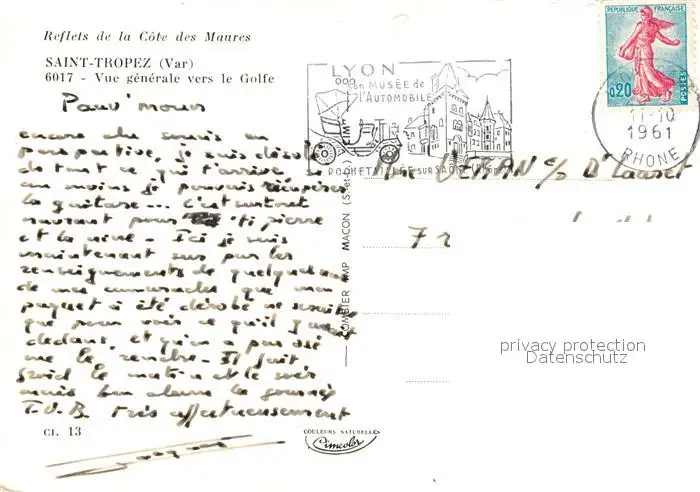 Reflets de la Côte des Maures
SAINT-TROPEZ (Var)
6017 - Vue générale vers le Golfe
REPUBLIQUE FRANÇAISE
0,20
POSTES
LYON
son MUSÉE de
l'AUTOMOBILE
ROCHETAILLÉE SUR SAÔNE
11-10
1961
RHONE
encore des soucis en
perspective, je suis désolé
de tout ce qui t'arrive. Si
au moins je pouvais récupérer
la guitare... C'est surtout
navrant pour ti pierre
et la mine. Ici je suis
maintenant sur par les
renseignements de quelques uns
de mes camarades que mon
paquet a été dérobé
que pour voir ce qu'il y
dedans, et qu'on a pas osé
me le rendre. Il fait
froid le matin et le soir
mais bon dans la journée
T.V.B. très affectueusement
VERAN c/o
71
COMBIER IMP. MACON (S.-et-L.) "CIM"
privacy protection
Datenschutz
CL. 13
COULEURS NATURELLES
Cimcolor